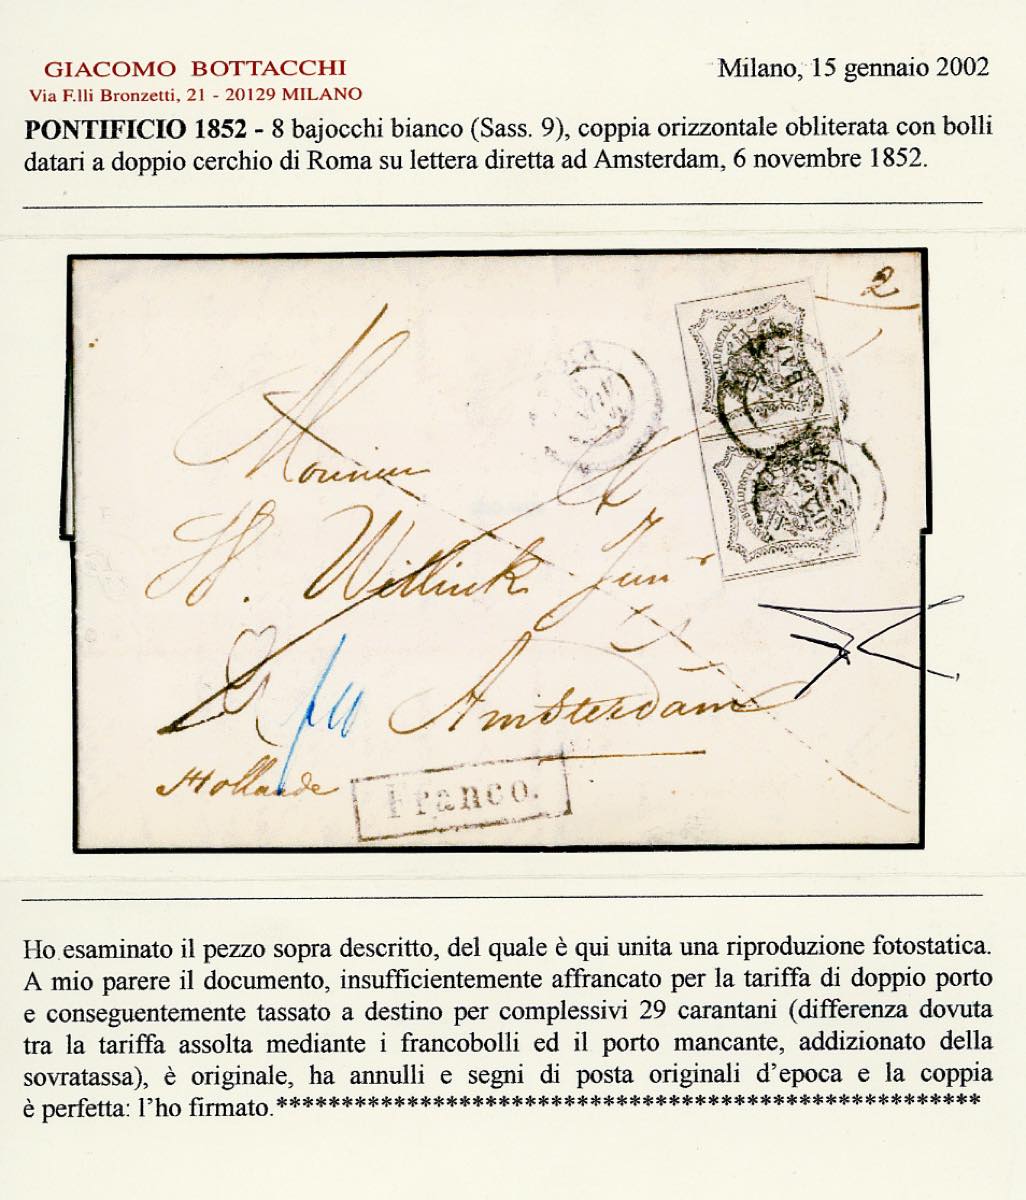 GIACOMO BOTTACCHI
Via F.lli Bronzetti, 21 - 20129 MILANO
Milano, 15 gennaio 2002
PONTIFICIO 1852 - 8 bajocchi bianco (Sass. 9), coppia orizzontale obliterata con bolli
datari a doppio cerchio di Roma su lettera diretta ad Amsterdam, 6 novembre 1852.
2
Monsieur
W. Willink Junr
Amsterdam
Hollande
Franco.
Ho esaminato il pezzo sopra descritto, del quale è qui unita una riproduzione fotostatica.
A mio parere il documento, insufficientemente affrancato per la tariffa di doppio porto
e conseguentemente tassato a destino per complessivi 29 carantani (differenza dovuta
tra la tariffa assolta mediante i francobolli ed il porto mancante, addizionato della
sovratassa), è originale, ha annulli e segni di posta originali d’epoca e la coppia
è perfetta: l’ho firmato.******************************************************